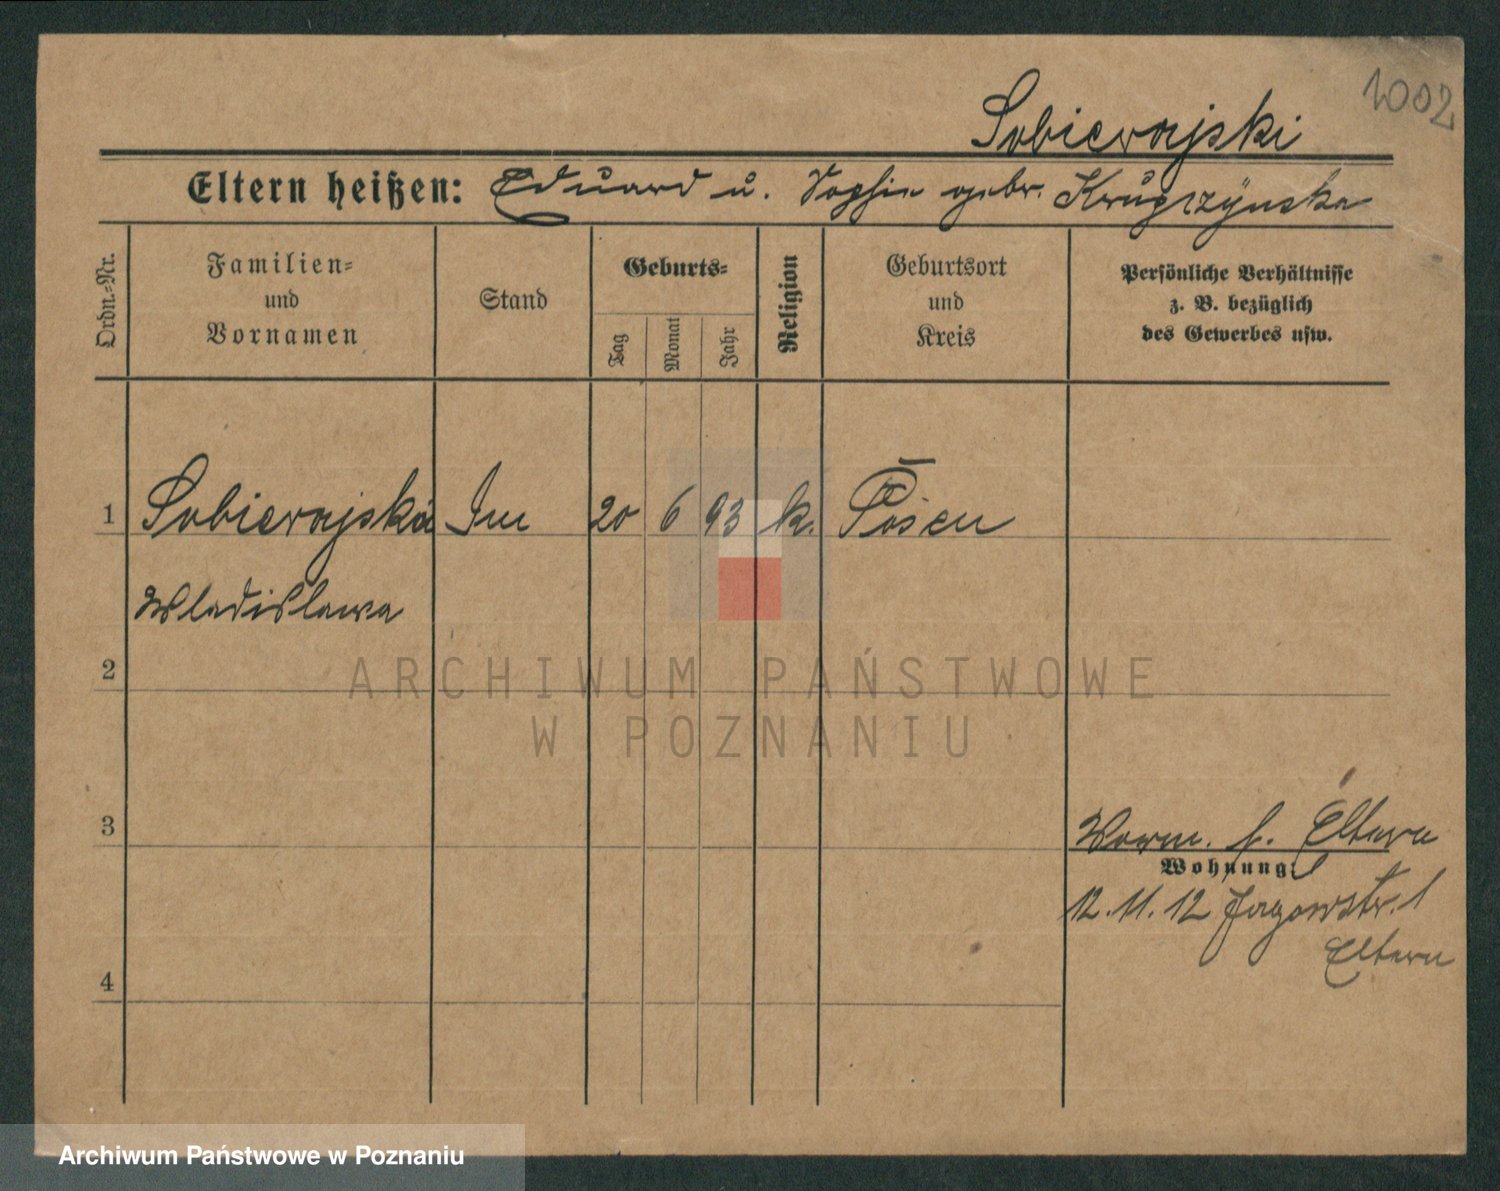 1002
Sobierajski
Eltern heißen: Eduard u. Sophie gebr. Krupczÿnska
Ordn.-Nr.
Familien-
und
Vornamen
Stand
Geburts-
Tag
Monat
Jahr
Religion
Geburtsort
und
Kreis
Persönliche Verhältnisse
z. B. bezüglich
des Gewerbes usw.
1 Sobierajska 20 6 93 k. Posen
Wladislawa
2
ARCHIWUM PAŃSTWOWE
W POZNANIU
3
Eltern
Wohnung:
12.11.12 Jagowstr. 1
Eltern
4
Archiwum Państwowe w Poznaniu